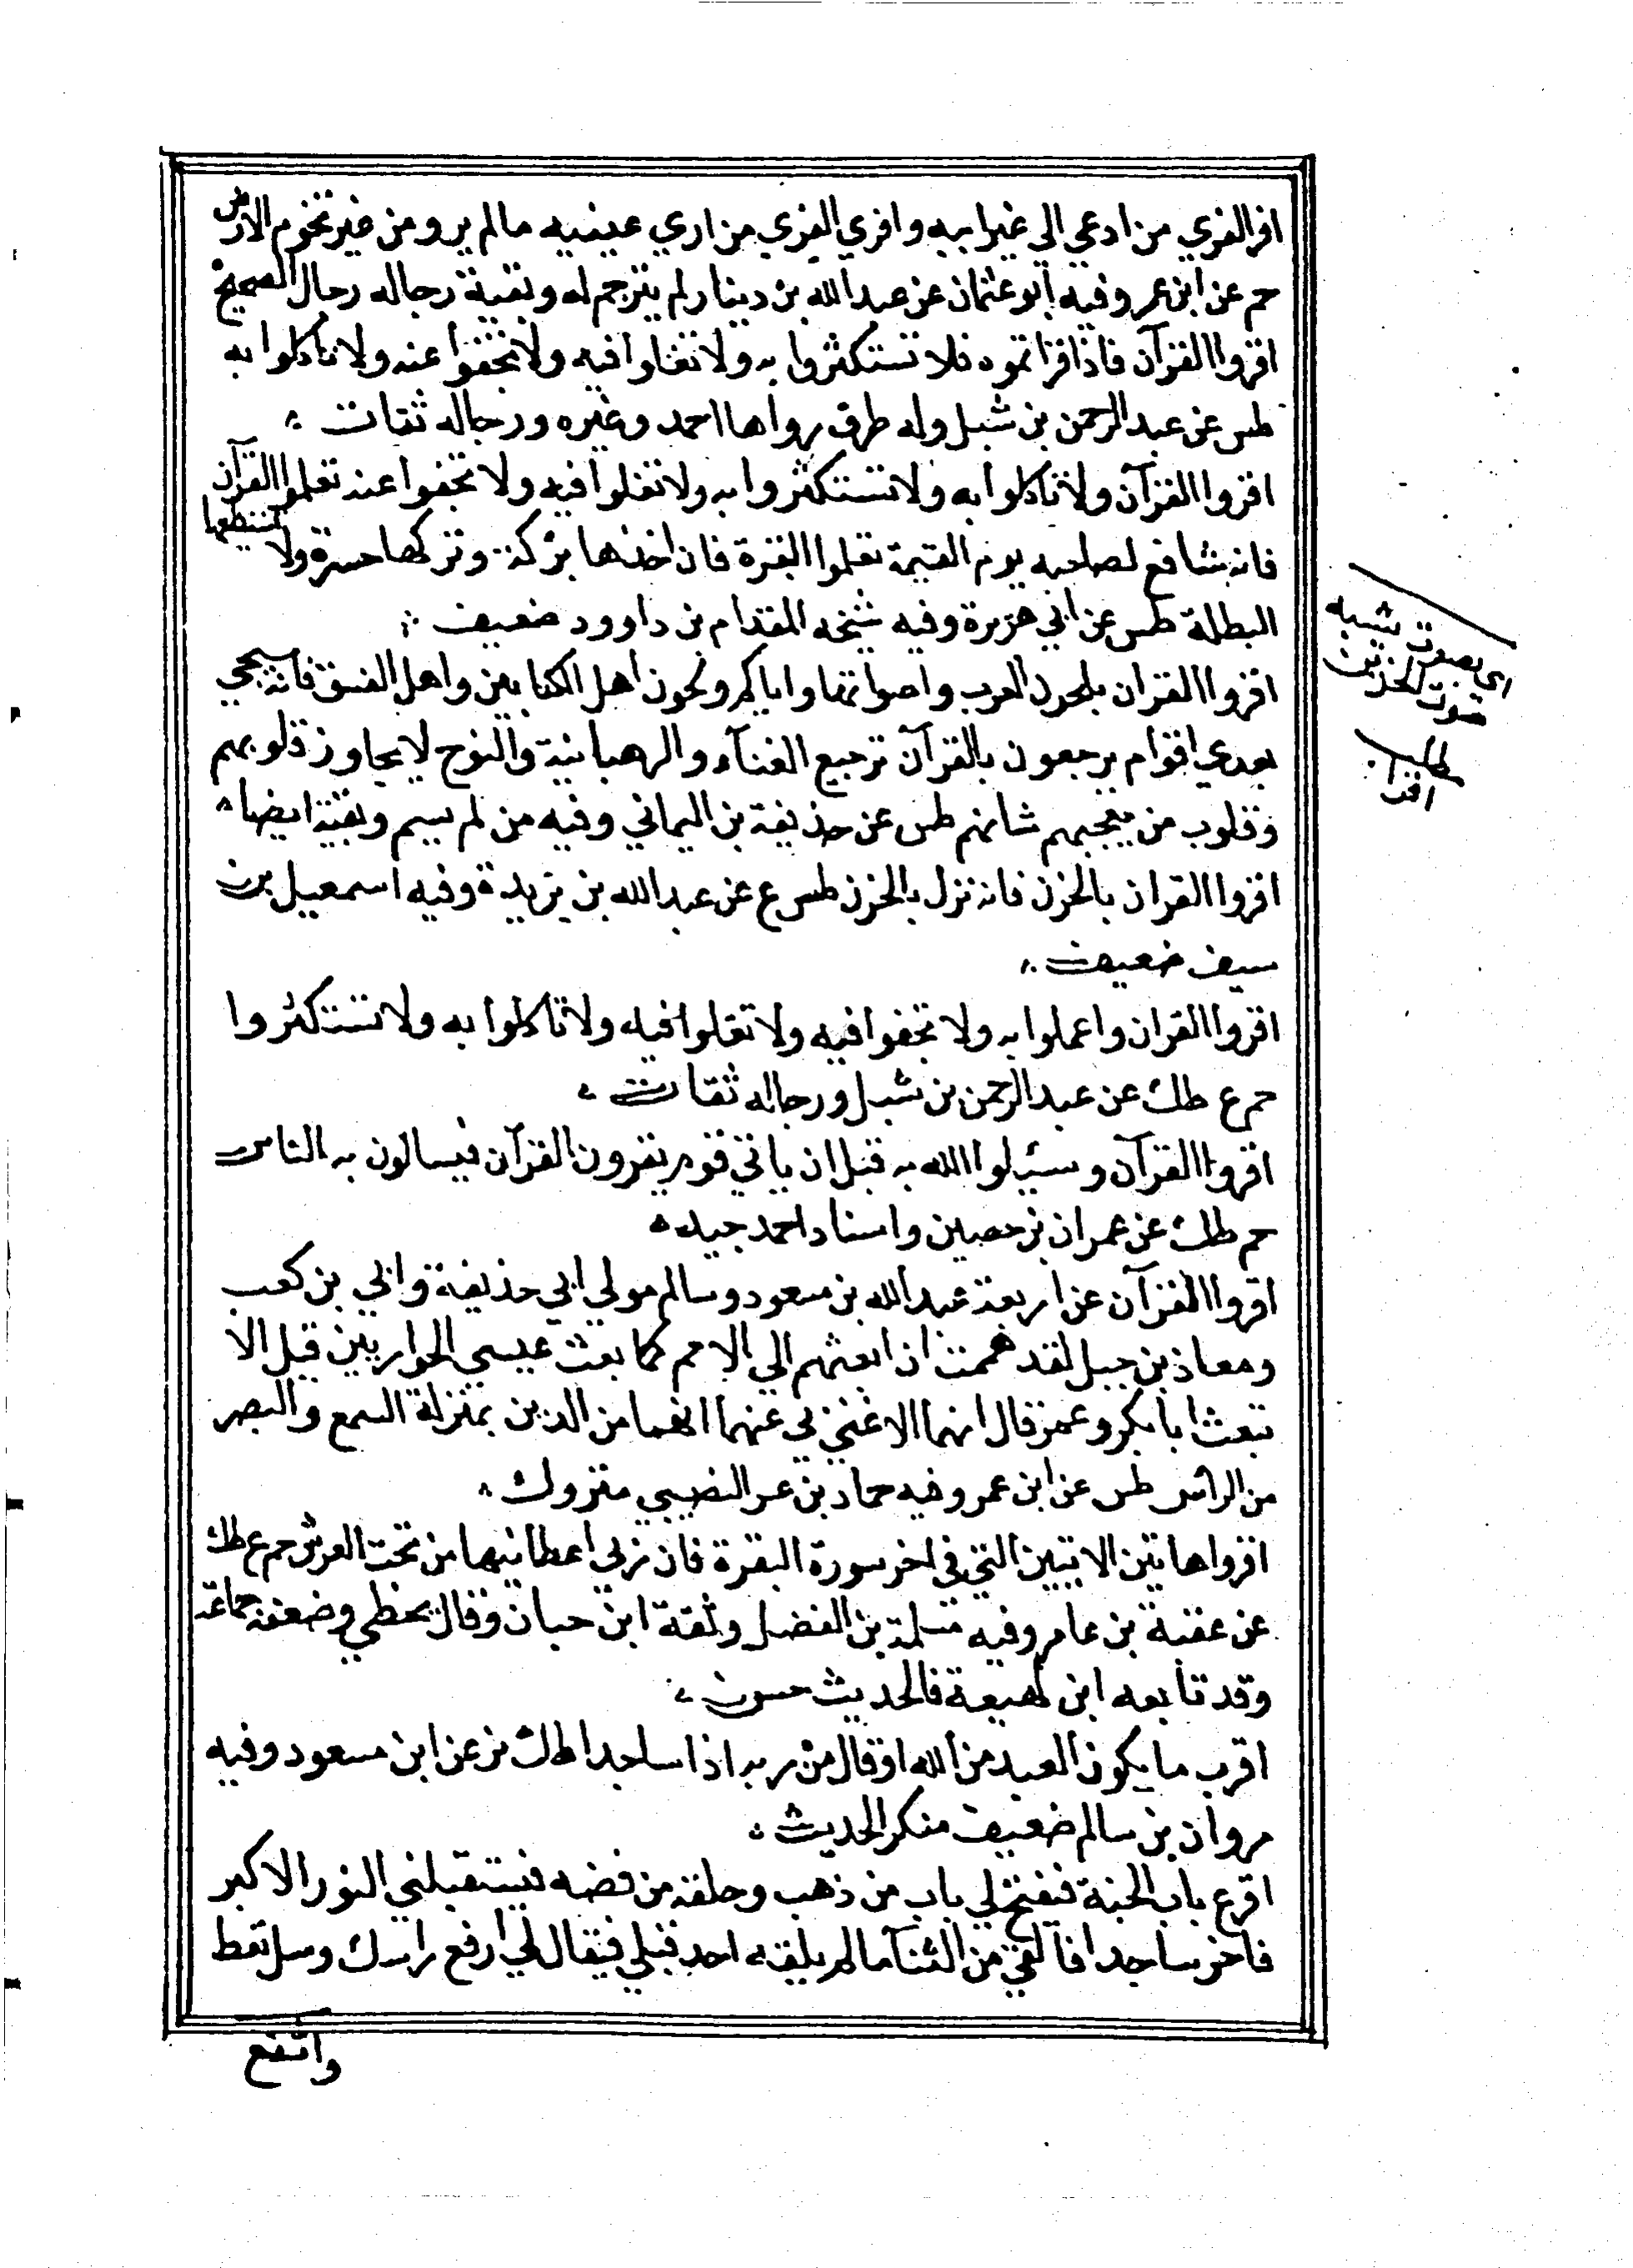 افر الفري من ادعي الي غير ابيه وافري الفري من اري عينيه مالم ير ومن غير تخوم الارض
حم عن ابن عمر وفيه ابو عثمان عن عبد الله بن دينار لم يترجم له وبقية رجاله رجال الصحيح
اقروا القرآن فاذا قراتموه فلا تستكثروا به ولا تغلوا فيه ولا تجفوا عنه ولا تاكلوا به
طس عن عبد الرحمن بن شبل وله طرق رواها احمد وغيره ورجاله ثقات
اقروا القرآن ولا تاكلوا به ولا تستكثروا به ولا تغلوا فيه ولا تجفوا عنه تعلموا القرآن
فانه شافع لصاحبه يوم القيمة تعلموا البقرة فان اخذها بركة وتركها حسرة ولا تستطيعها
البطلة طس عن ابي هريرة وفيه شيخه المقدام بن داوود ضعيف
اقروا القران بلحون العرب واصواتها واياكم ولحون اهل الكتابين واهل الفسق فانه سيجي
بعدي اقوام يرجعون بالقرآن ترجيع الغناء والرهبانية والنوح لا يجاوز قلوبهم
وقلوب من يعجبهم شانهم طس عن حذيفة بن اليماني وفيه من لم يسم وبقية ايضا
اقروا القران بالحزن فانه نزل بالحزن طس ع عن عبد الله بن بريدة وفيه اسمعيل بن
سيف ضعيف
اقروا القران واعملوا به ولا تجفوا فيه ولا تغلوا فيه ولا تاكلوا به ولا تستكثروا
حم ع طك عن عبد الرحمن بن شبل ورجاله ثقات
اقروا القرآن وسيلوا الله به قبل ان ياتي قوم يقرون القرآن فيسالون به الناس
حم طك عن عمران بن حصين واسناد احمد جيد
اقروا القرآن عن اربعة عبد الله بن مسعود وسالم مولي ابي حذيفة وابي بن كعب
ومعاذ بن جبل لقد هممت ان ابعثهم الي الامم كما بعث عيسي الحواريين قيل الا
تبعث ابا بكر وعمر قال انهما لا غني لي عنهما انهما من الدين بمنزلة السمع والبصر
من الراس طس عن ابن عمر وفيه حماد بن عمر النصيبي متروك
اقروا هاتين الايتين التي في اخر سورة البقرة فان ربي اعطانيهما من تحت العرش حم ع طك
عن عقبة بن عامر وفيه مسلمة بن الفضل وثقة ابن حبان وقال يخطي وضعفه جماعة
وقد تابعه ابن لهيعة فالحديث حسن
اقرب ما يكون العبد من الله او قال من ربه اذا ساجدا طك بز عن ابن مسعود وفيه
مروان بن سالم ضعيف منكر الحديث
اقرع باب الجنة فيفتح لي باب من ذهب وحلقه من فضه فيستقبلني النور الاكبر
فاخر ساجدا فالقي من الثناء مالم يلقه احد قبلي فيقال لي ارفع راسك وسل تعط
واشفع
اي بصوت يشبه
صوت الحزين
مطلب
اقرا